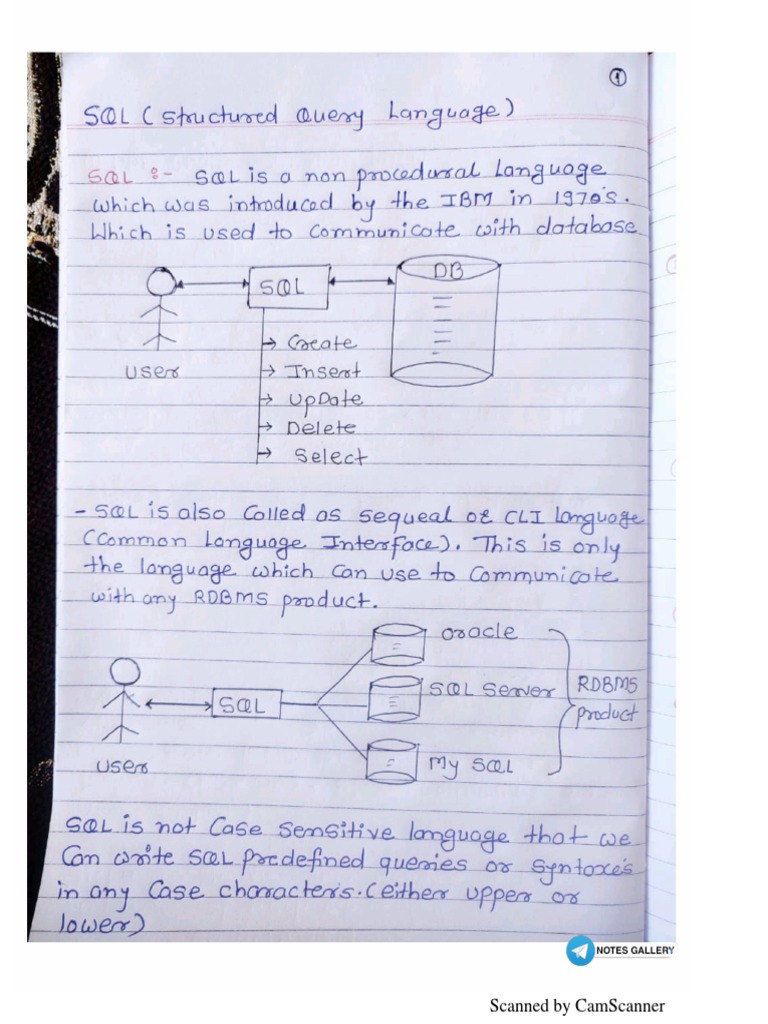 1
SQL (Structured Query Language)
SQL :- SQL is a non procedural Language
which was introduced by the IBM in 1970's.
Which is used to Communicate with database
DB
SQL
User
→ Create
→ Insert
→ UpDate
→ Delete
→ Select
- SQL is also Called as Sequeal or CLI language
(Common Language Interface). This is only
the language which Can use to Communicate
with any RDBMS product.
Oracle
SQL Server
RDBMS
product
SQL
User
My SQL
SQL is not Case Sensitive language that we
Can write SQL predefined queries or Syntaxe's
in any Case characters. (either upper or
lower)
NOTES GALLERY
Scanned by CamScanner